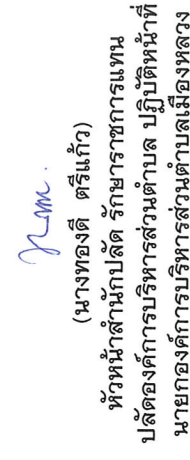 (นางทองดี  ตรีแก้ว)
หัวหน้าสำนักปลัด รักษาราชการแทน
ปลัดองค์การบริหารส่วนตำบล ปฏิบัติหน้าที่
นายกองค์การบริหารส่วนตำบลเมืองหลวง